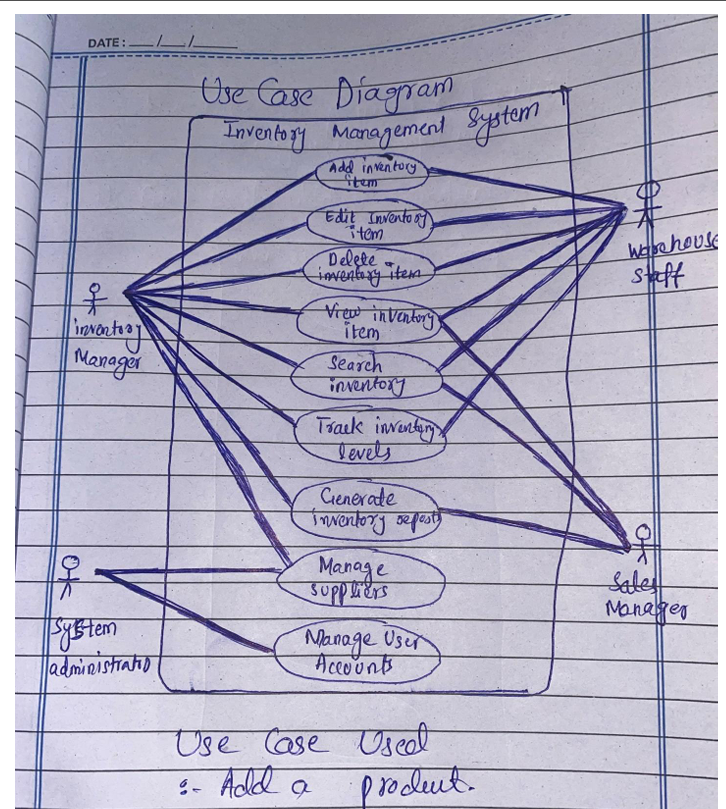 DATE: __/__/____
Use Case Diagram
Inventory Management System
Add inventory
item
Edit Inventory
item
Delete
inventory item
View inventory
item
Search
inventory
Track inventory
levels
Generate
inventory report
Manage
suppliers
Manage User
Accounts
inventory
Manager
System
administrato
Warehouse
Staff
Sales
Manager
Use Case Used
:- Add a product.